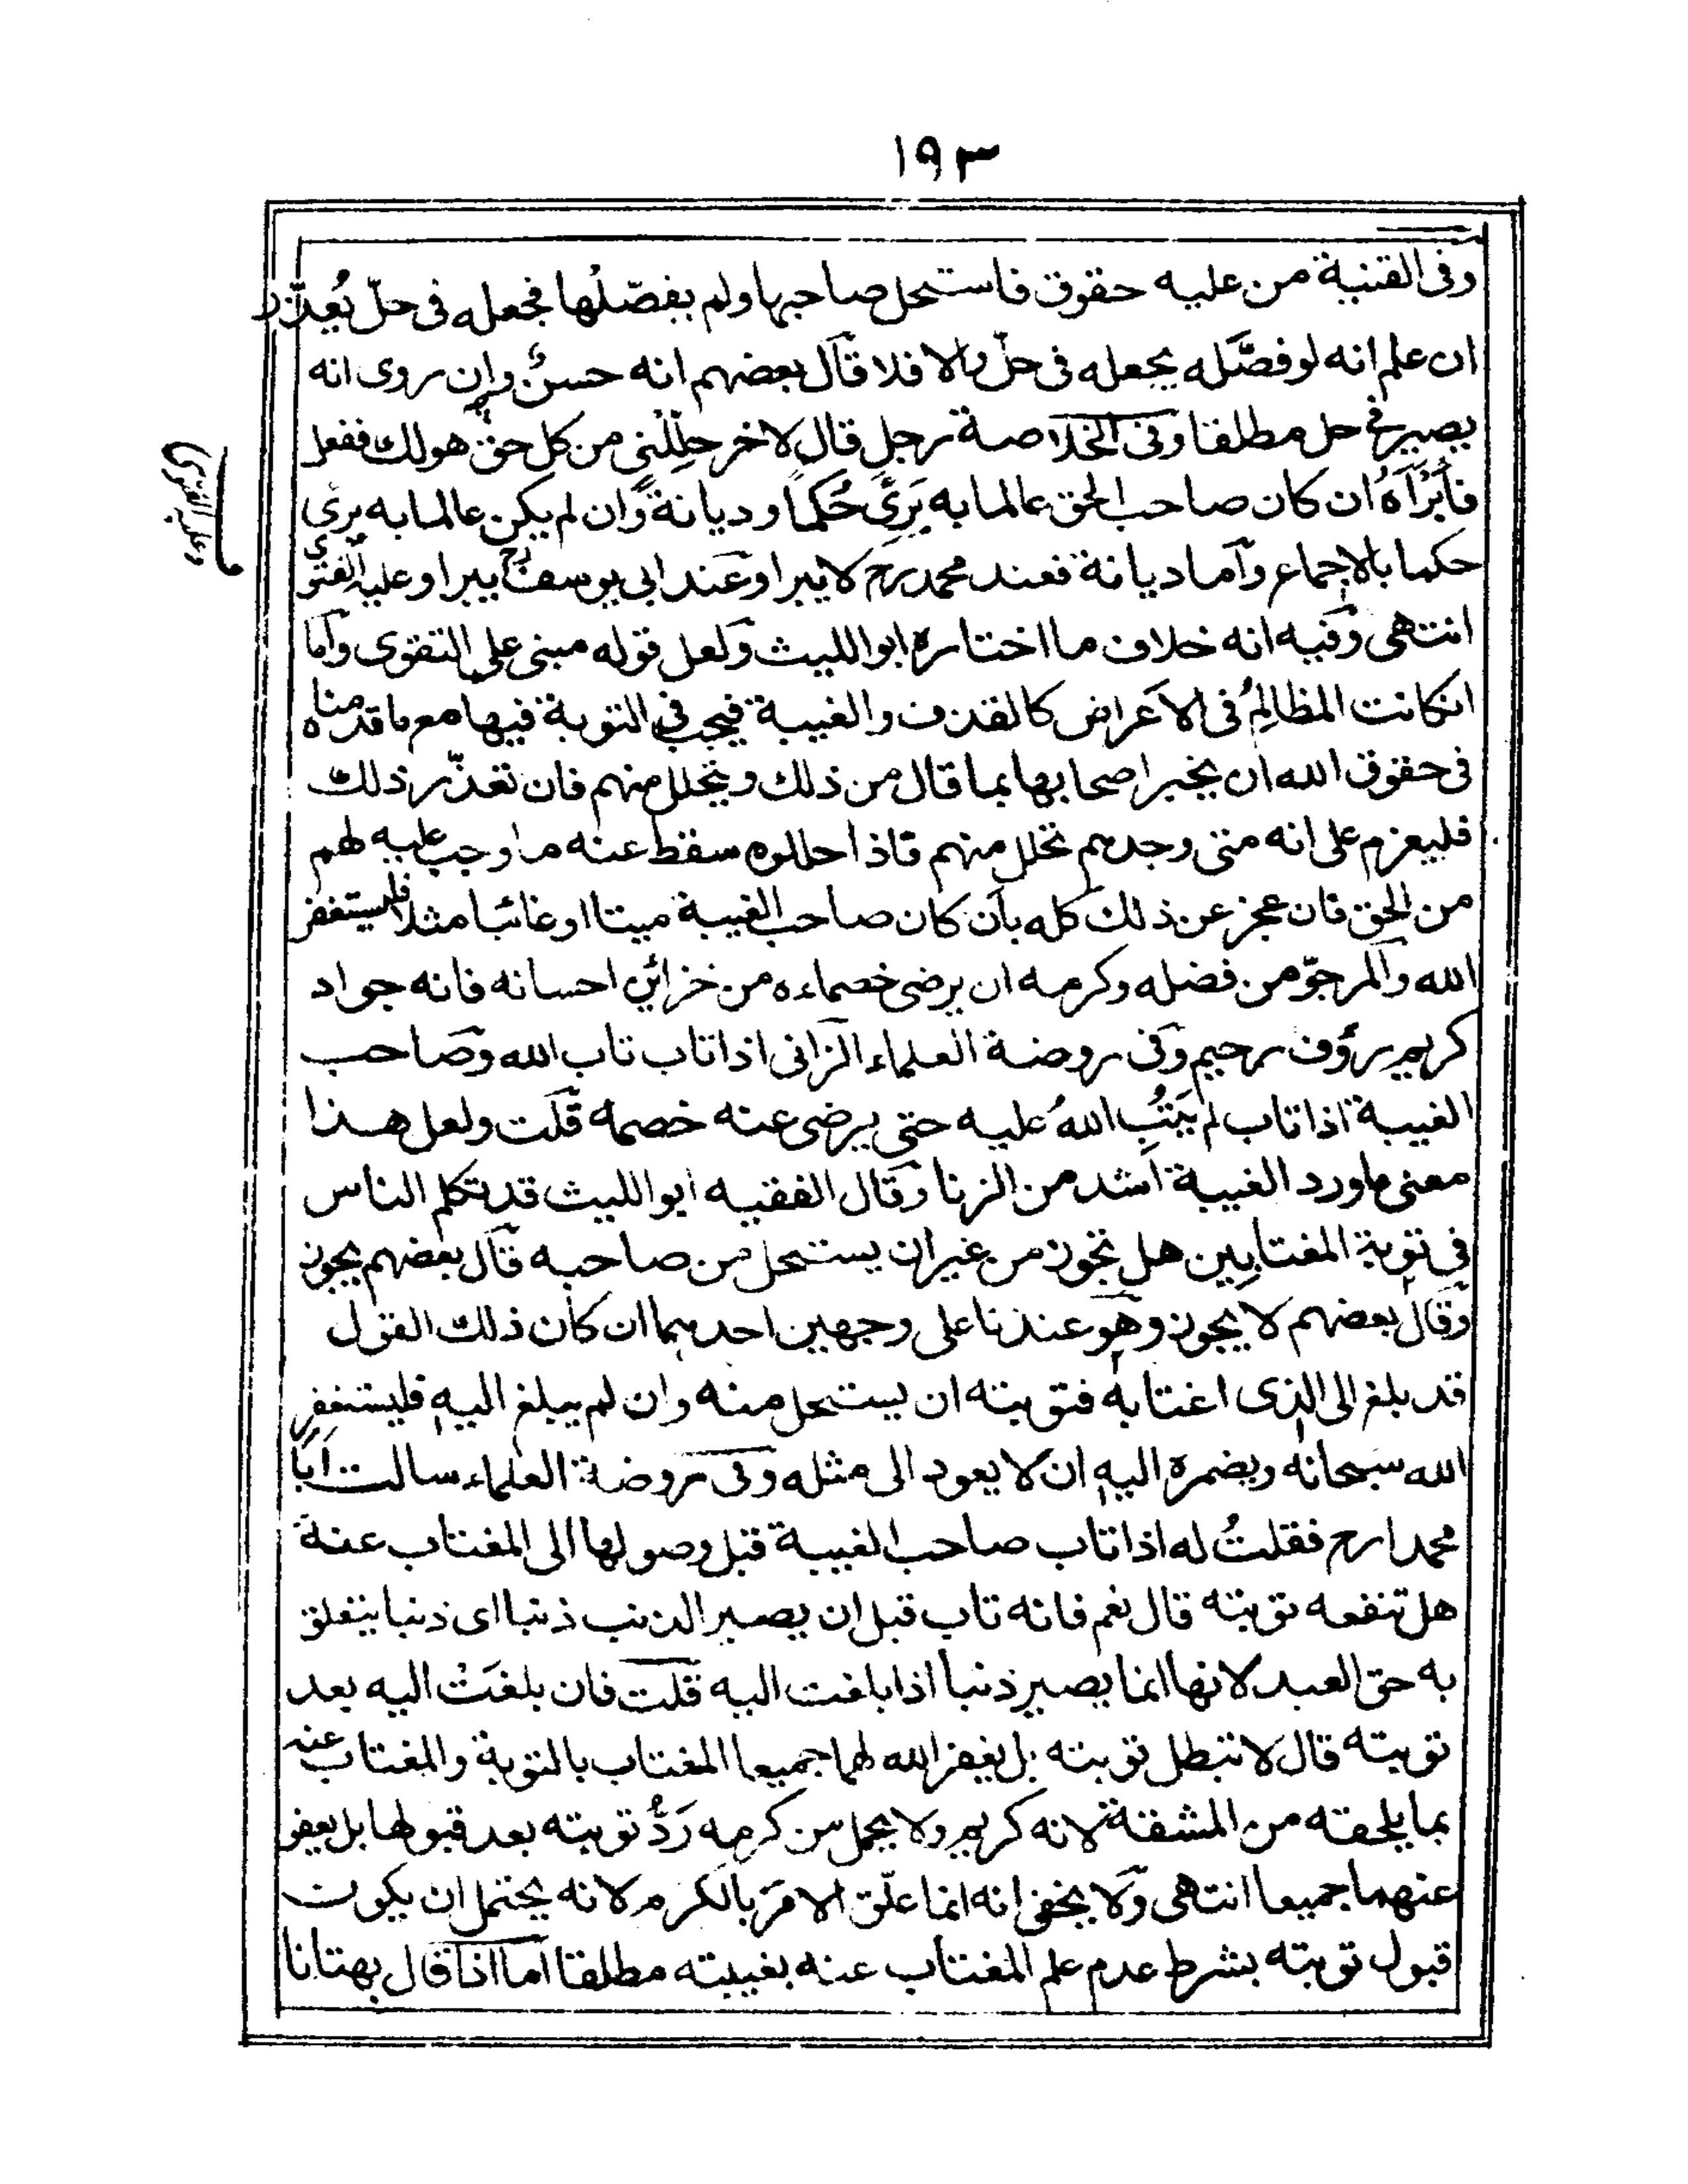 ١٩٣
وفى القنية من عليه حقوق فاستحل صاحبها ولم يفصّلها فجعله فى حلّ يُعذّر
ان علم انه لو فصَّله يجعله فى حلّ والا فلا قال بعضهم انه حسنٌ وإن روى انه
يصير فى حل مطلقا وفى الخلاصة رجل قال لاخر حلِلْنى من كل حق هو لك ففعل
فأَبْرَأَهُ ان كان صاحب الحق عالما به بَرِئَ حُكماً و ديانةً وان لم يكن عالما به برئ
حكما بالاجماع وأما ديانة فعند محمد رح لا يبرا وعند ابى يوسف رح يبرا وعليه الفتوى
انتهى وفيه انه خلاف ما اختاره ابو الليث ولعل قوله مبنى على التقوى وأما
انكانت المظالِمُ فى الاعراض كالقذف والغيبة فيجب فى التوبة فيها مع ما قدمناه
فى حقوق الله ان يخبر اصحابها بما قال من ذلك ويتحلل منهم فان تعذّر ذلك
فليعزم على انه متى وجدهم تحلل منهم فاذا حللوه سقط عنه ما وجب عليه لهم
من الحق فان عجز عن ذلك كله بأن كان صاحب الغيبة ميتا او غائبا مثلا فليستغفر
الله والمرجوّ من فضله وكرمه ان يرضى خصماءه من خزائن احسانه فانه جواد
كريم رؤف رحيم وفى روضة العلماء الزانى اذا تاب تاب الله وصاحب
الغيبة اذا تاب لم يَتُبِ اللهُ عليه حتى يرضى عنه خصمه قلت ولعل هذا
معنى ما ورد الغيبة اشد من الزنا وقال الفقيه ابو الليث قد تكلم الناس
فى توبة المغتابين هل تجوز من غير ان يستحل من صاحبه قال بعضهم يجوز
وقال بعضهم لا يجوز وهو عندنا على وجهين احدهما ان كان ذلك القول
قد بلغ الى الذى اغتابه فتوبته ان يستحل منه وان لم يبلغ اليه فليستغفر
الله سبحانه ويضمره اليه ان لا يعود الى مثله وفى روضة العلماء سالت أبا
محمدا رح فقلتُ له اذا تاب صاحب الغيبة قبل وصولها الى المغتاب عنه
هل تنفعه توبته قال نعم فانه تاب قبل ان يصير الذنب ذنبا اى ذنبا يتعلق
به حق العبد لانها انما يصير ذنبا اذا بلغت اليه قلت فان بلغَتْ اليه بعد
توبته قال لا تبطل توبته بل يغفر الله لهما جميعا المغتاب بالتوبة والمغتاب عنه
بما يلحقه من المشقة لانه كريم ولا يجمل من كرمه رَدُّ توبته بعد قبولها بل يعفو
عنهما جميعا انتهى ولا يخفى انه انما علّق الامر بالكرم لانه يحتمل ان يكون
قبول توبته بشرط عدم علم المغتاب عنه بغيبته مطلقا اما اذا قال بهتانا
وعليه الفتوى